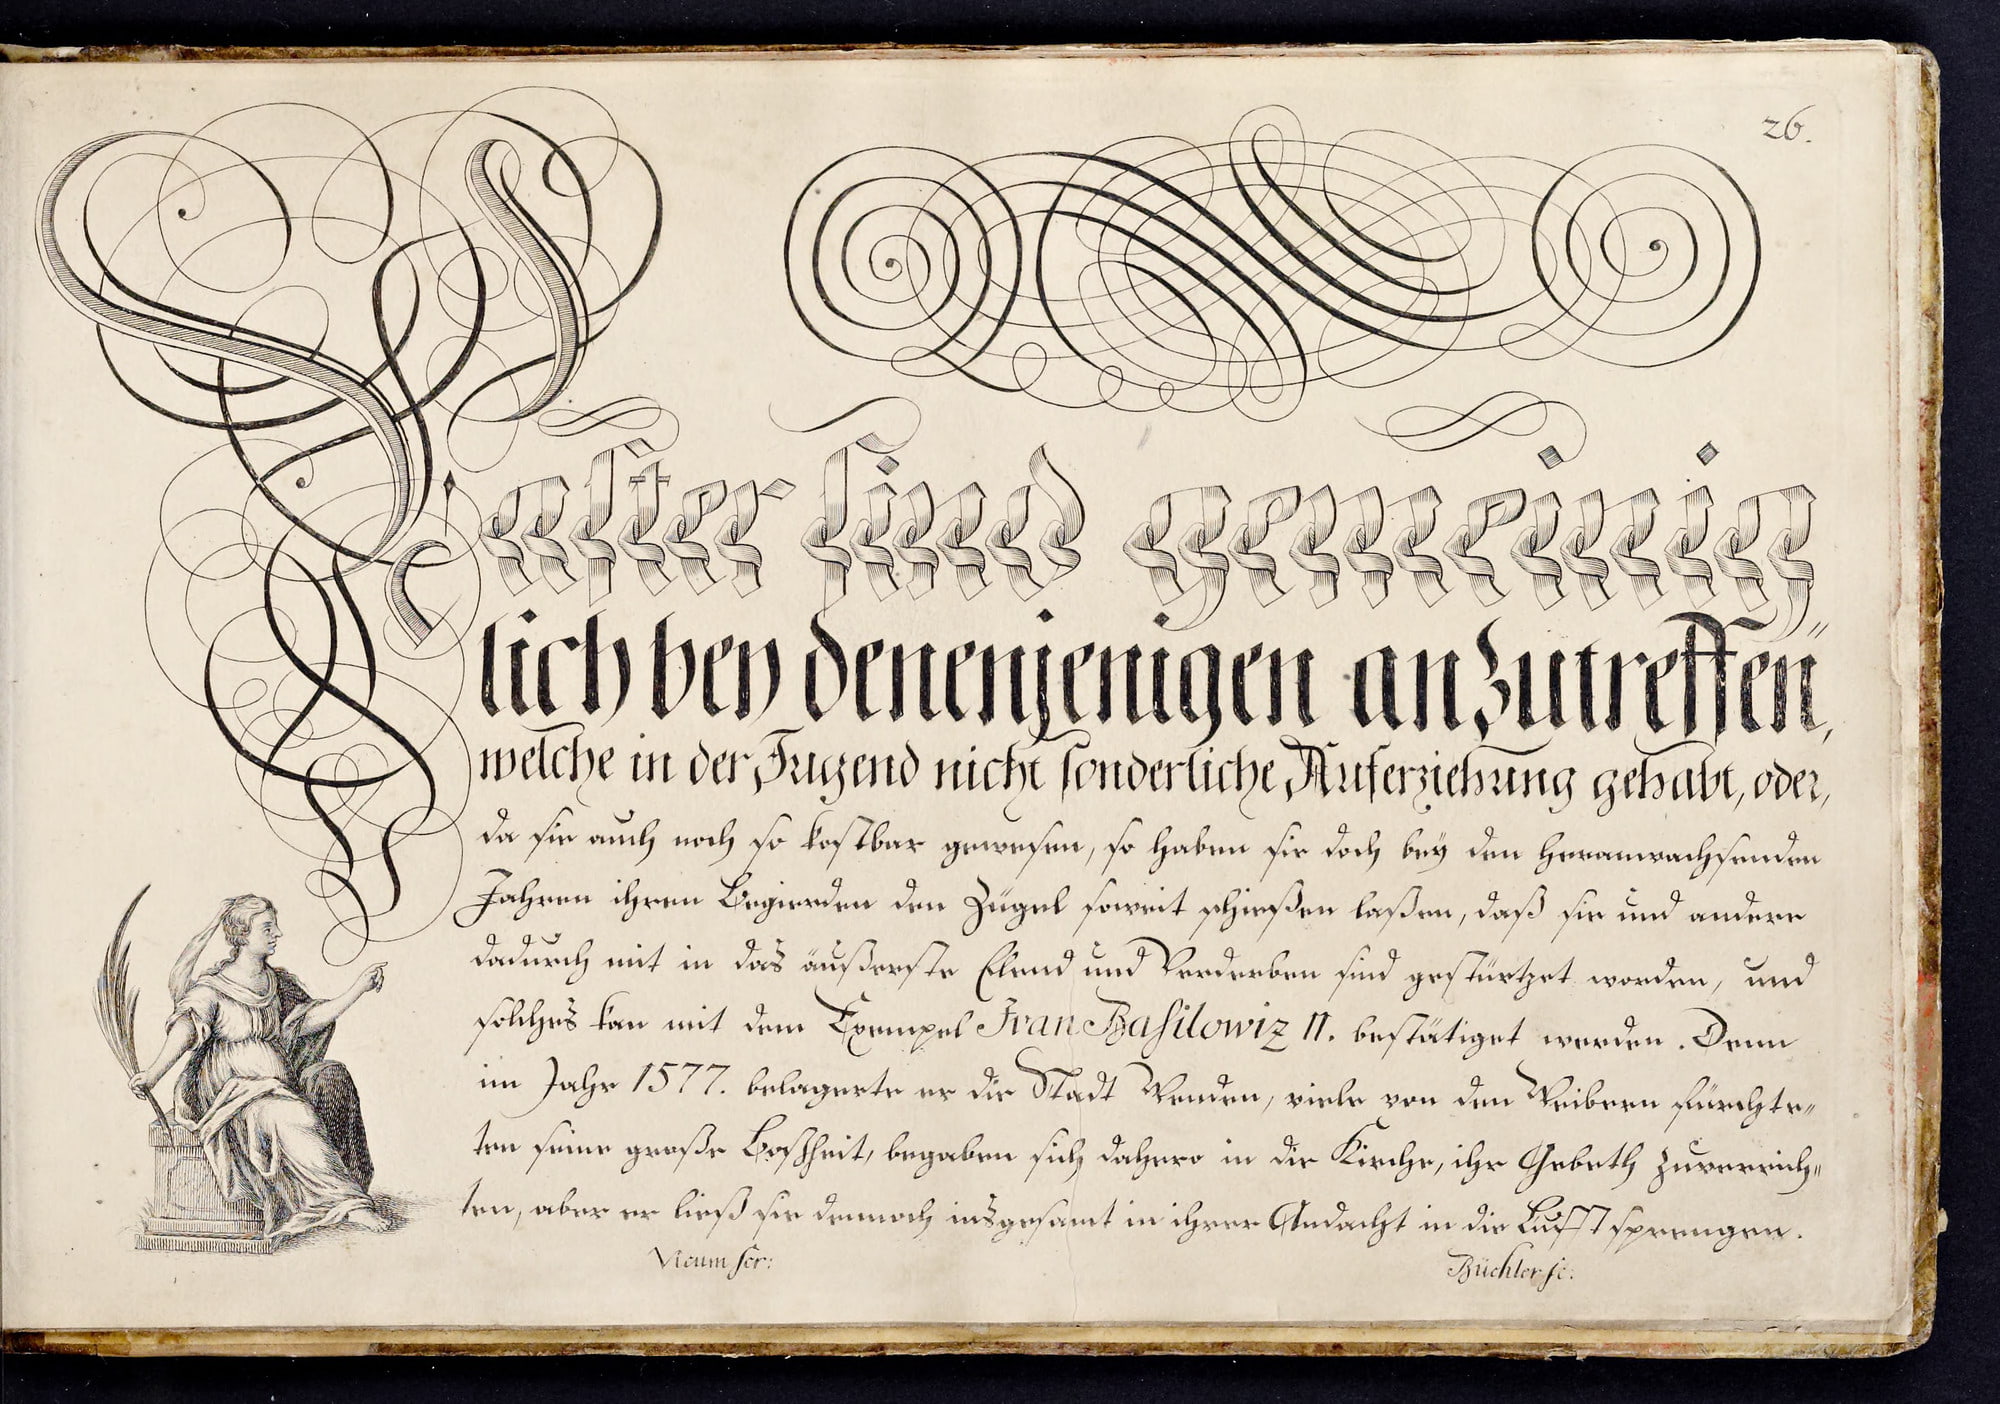 26.
Laster sind gemeinig„
lich bey denenjenigen anzutreffen,
welche in der Jugend nicht sonderliche Auferziehung gehabt, oder,
da sie auch noch so kostbar gewesen, so haben sie doch bey den heranwachsenden
Jahren ihren Begierden den Zügel soweit schießen laßen, daß sie und andere
dadurch mit in das äußerste Elend und Verderben sind gestürtzet worden, und
solches kan mit dem Exempel Ivan Basilowiz II. bestätiget werden. Denn
im Jahr 1577. belagerte er die Stadt Wenden, viele von den Weibern fürchte„
ten seine große Boßheit, begaben sich dahero in die Kirche, ihr Gebeth zuverrich„
ten, aber er ließ sie dennoch insgesamt in ihrer Andacht in die Lufft sprengen.
Vicum scr: Büchler sc: